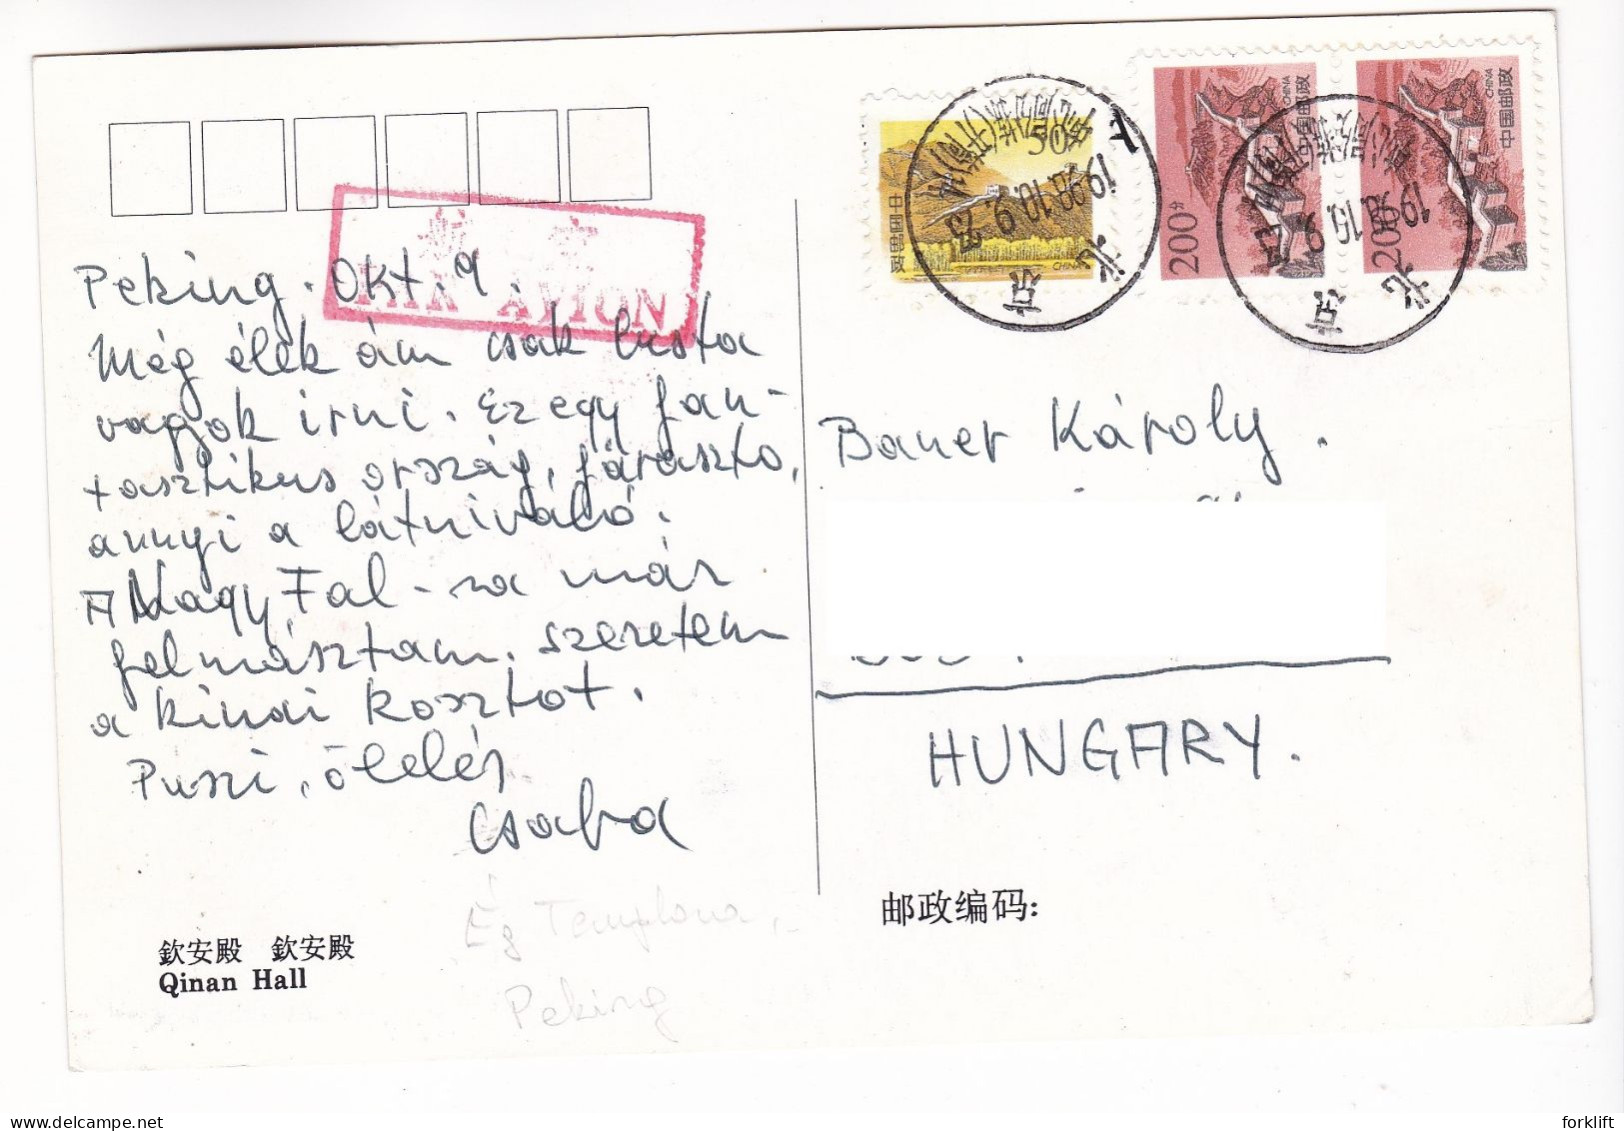 PAR AVION
Peking. Okt. 9.
Még élek ám csak lusta
vagyok irni. Ez egy fan-
tasztikus ország, fárasztó,
annyi a látnivaló.
A Nagy Fal-ra már
felmásztam. szeretem
a kinai kosztot.
Puszi, ölelés
Csaba
Ég Temploma,
Peking
欽安殿 欽安殿
Qinan Hall
50分
中国邮政
CHINA
200分
中国邮政
CHINA
200分
中国邮政
CHINA
北京
1998.10.9. 23
北京
1998.10.9. 23
Bauer Károly.
HUNGARY.
邮政编码:
forklift
delcampe.net